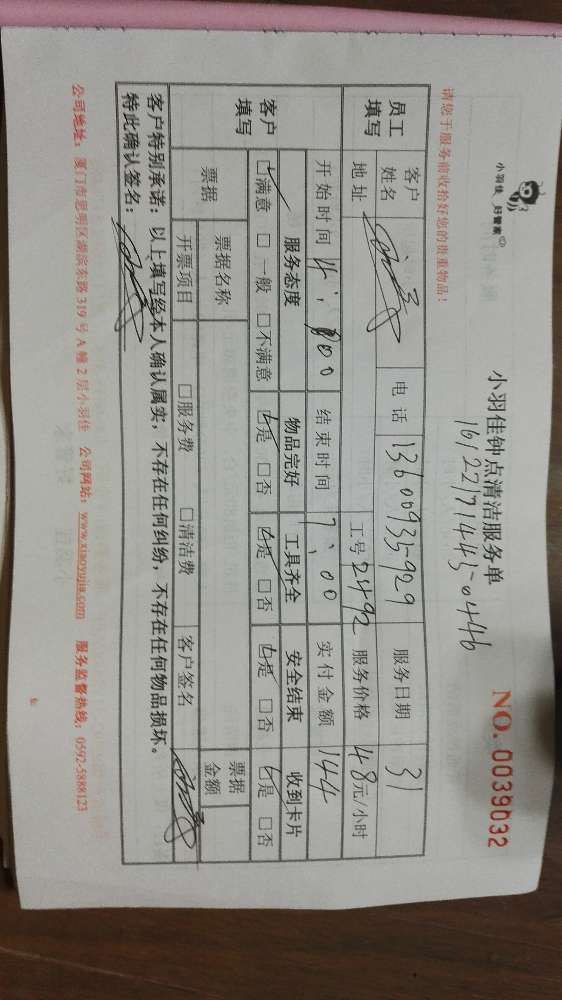 小羽佳 好管家
小羽佳钟点清洁服务单
NO. 0039032
16122171443-0446
请您于服务前收拾好您的贵重物品！
员工填写
客户姓名
电话 13600935929
服务日期 31
地址
工号 2492
服务价格 48元/小时
开始时间 4:00
结束时间 7:00
实付金额 144
客户填写
服务态度 物品完好 工具齐全 安全结束 收到卡片
☑满意 □一般 □不满意 ☑是 □否 ☑是 □否 ☑是 □否 ☑是 □否
票据
票据名称
票据金额
开票项目 □服务费 □清洁费 客户签名
客户特别承诺：以上填写经本人确认属实，不存在任何纠纷，不存在任何物品损坏。
特此确认签名：
公司地址：厦门市思明区湖滨东路 319 号 A 幢 2 层小羽佳 公司网站：www.xiaoyujia.com 服务监督热线：0592-5888123